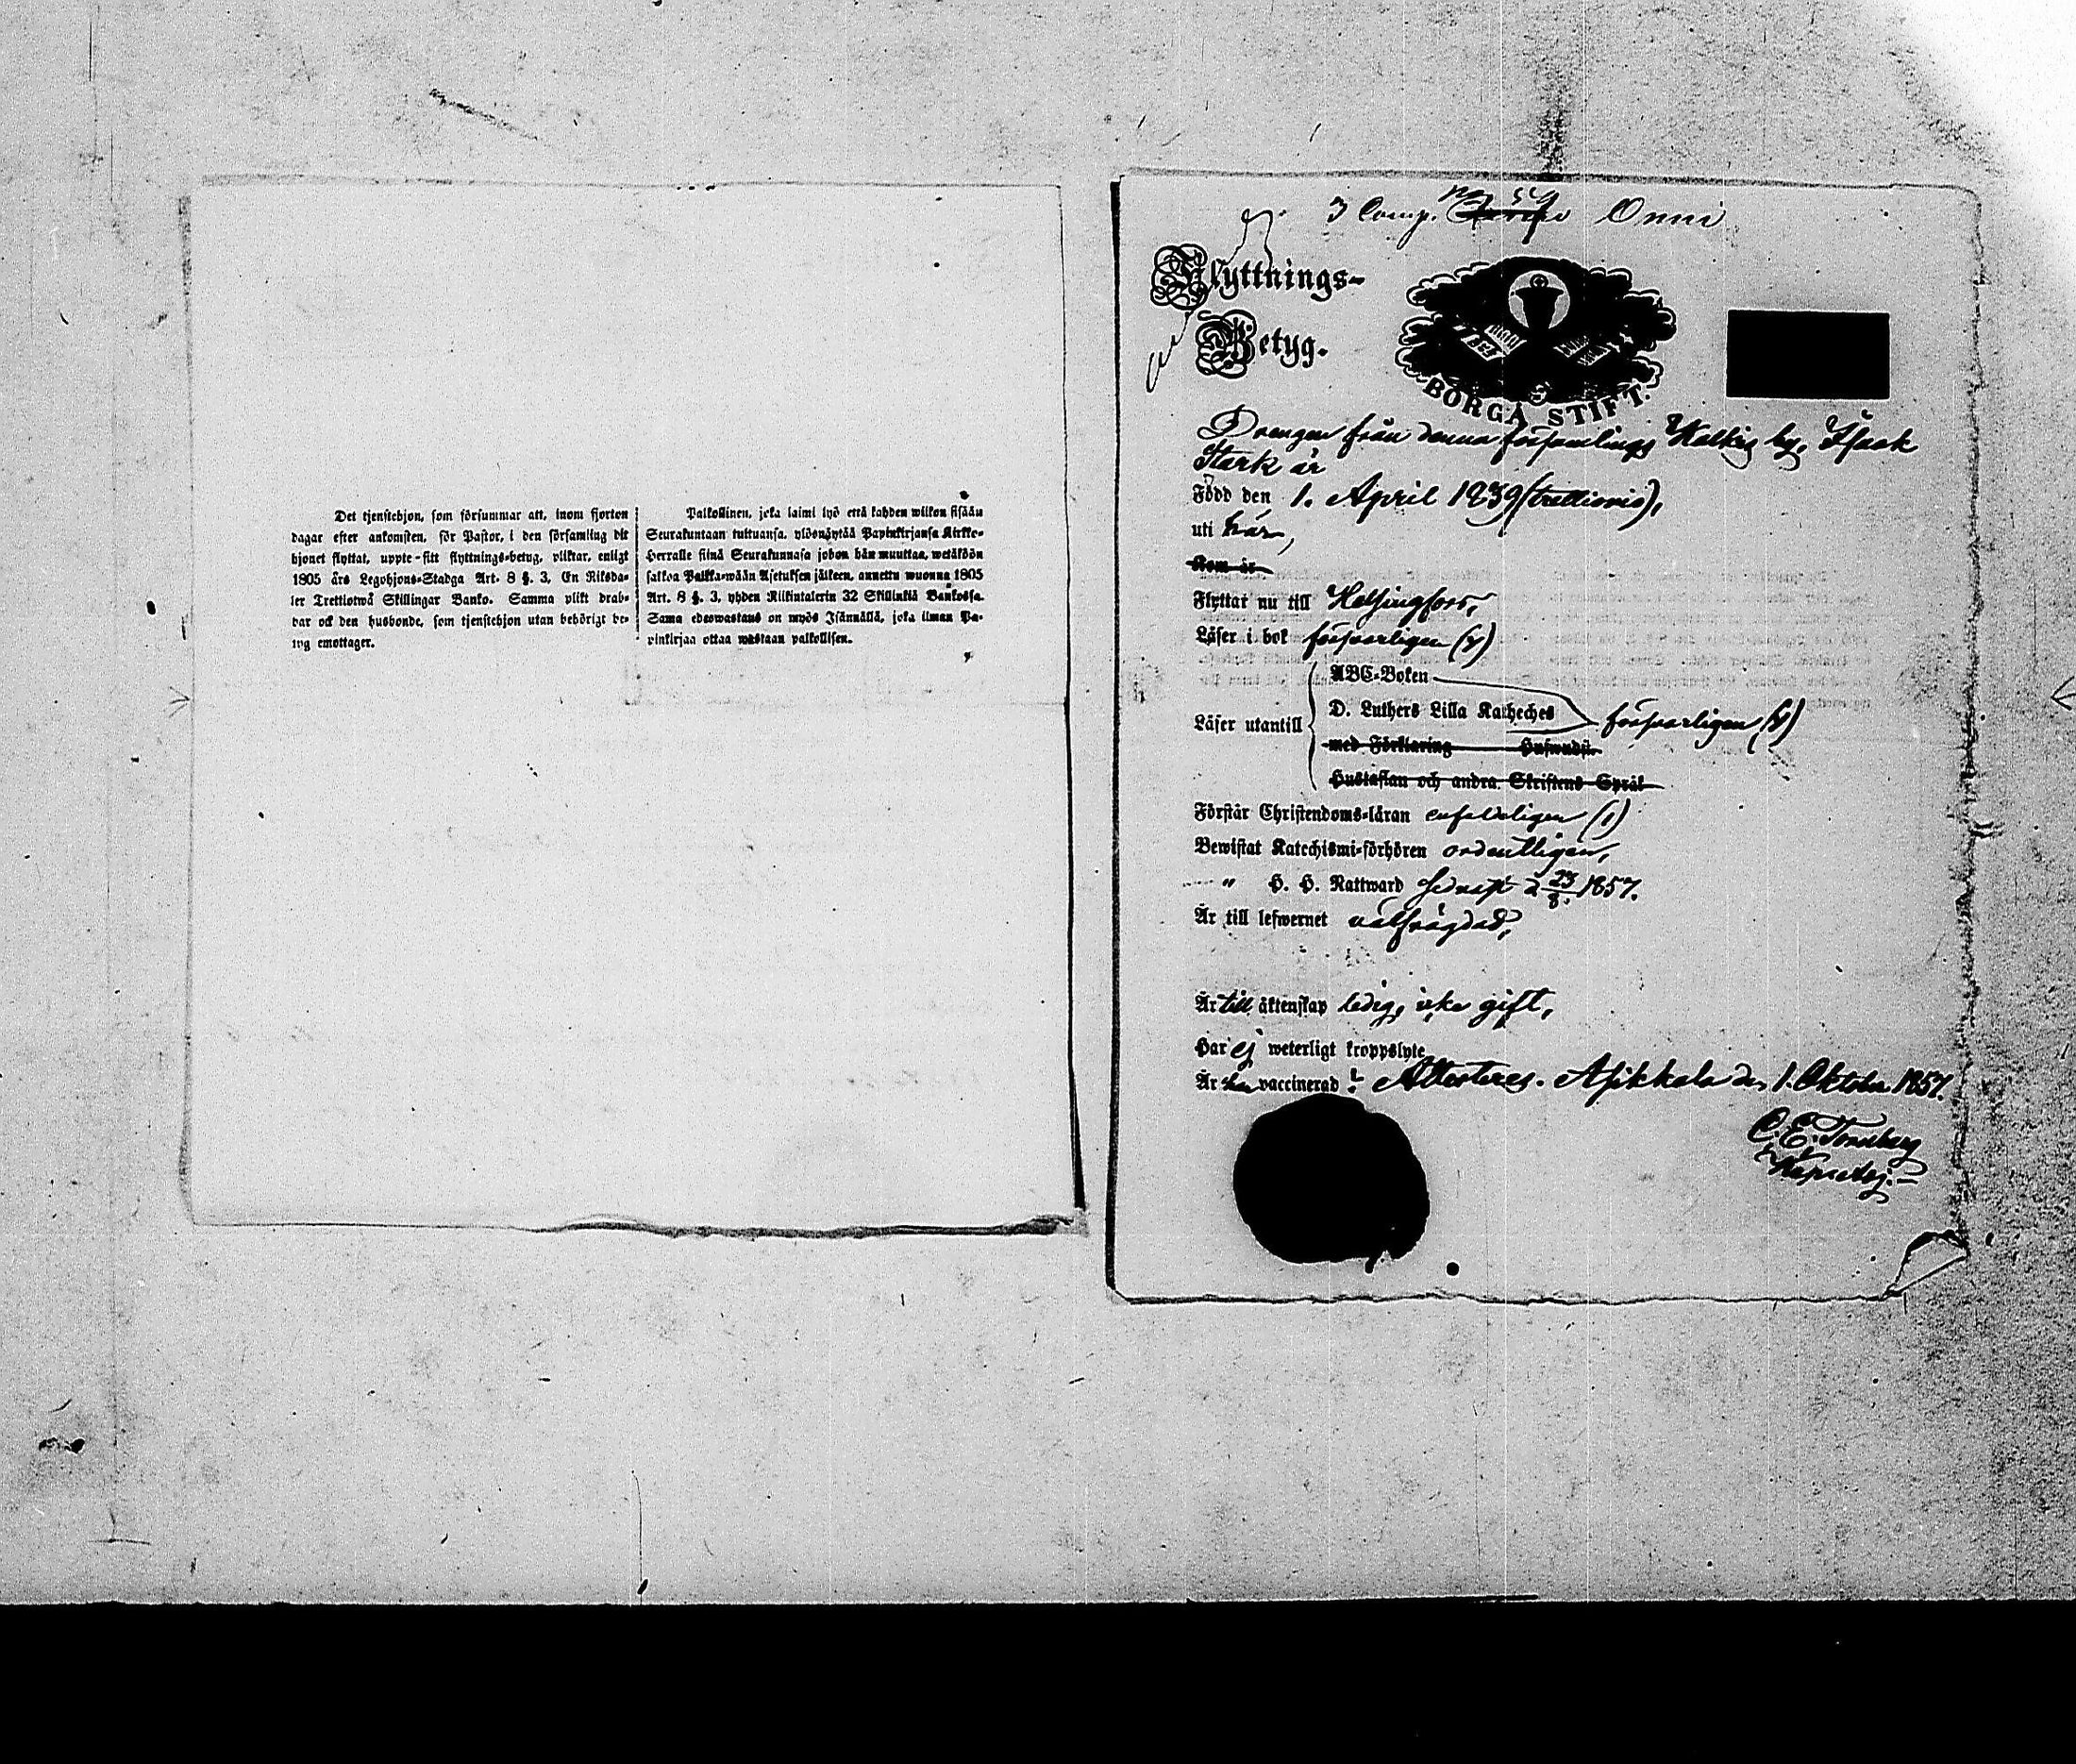 Det tjenstehjon, som försummar att, inom fjorton
dagar efter ankomsten, för Pastor, i den församling dit
hjonet flyttat, uppte-sitt flyttnings-betyg, pliktar, enligt
1805 års Legohjons-Stadga Art. 8 §. 3, En Riksda-
ler Trettiotwå Skillingar Banko. Samma plikt drab-
bar ock den husbonde, som tjenstehjon utan behörigt be-
tyg emottager.
Palkollinen, joka laimi lyö että kahden wiikon sisään
Seurakuntaan tultuansa, ylösnäyttää Papinkirjansa Kirkko-
Herralle siinä Seurakunnasa johon hän muuttaa, wetäköön
sakkoa Palkka-wään Asetuksen jälkeen, annettu wuonna 1805
Art. 8 §. 3, yhden Riikintalerin 32 Skillinkiä Bankossa.
Sama edeswastaus on myös Isännällä, joka ilman Pa-
pinkirjaa ottaa wastaan palkollisen.
3 Comp. Onni
Flyttnings-
Betyg.
BORGÅ STIFT.
Drengen från denna församlings Kalkis by, Isaak
Stark är
Född den 1. April 1839 (trettionio),
uti här,
Kom år
Flyttar nu till Helsingfors,
Läser i bok försvarligen (v)
ABC-Boken
D. Luthers Lilla Katheches
Läser utantill försvarligen (v)
med Förklaring
Hustaflan och andra Skriftens Språk
Förstår Christendoms-läran enfaldeligen (1)
Bewistat Katechismi-förhören ordentligen,
" H. H. Nattward senast d 23/8. 1857.
Är till lefwernet välfrägdad,
Är till äktenskap ledig, icke gift,
Har ej weterligt kroppslyte
Är han vaccinerad! Attesteras. Asikkala den 1. Oktober 1857.
C. E.